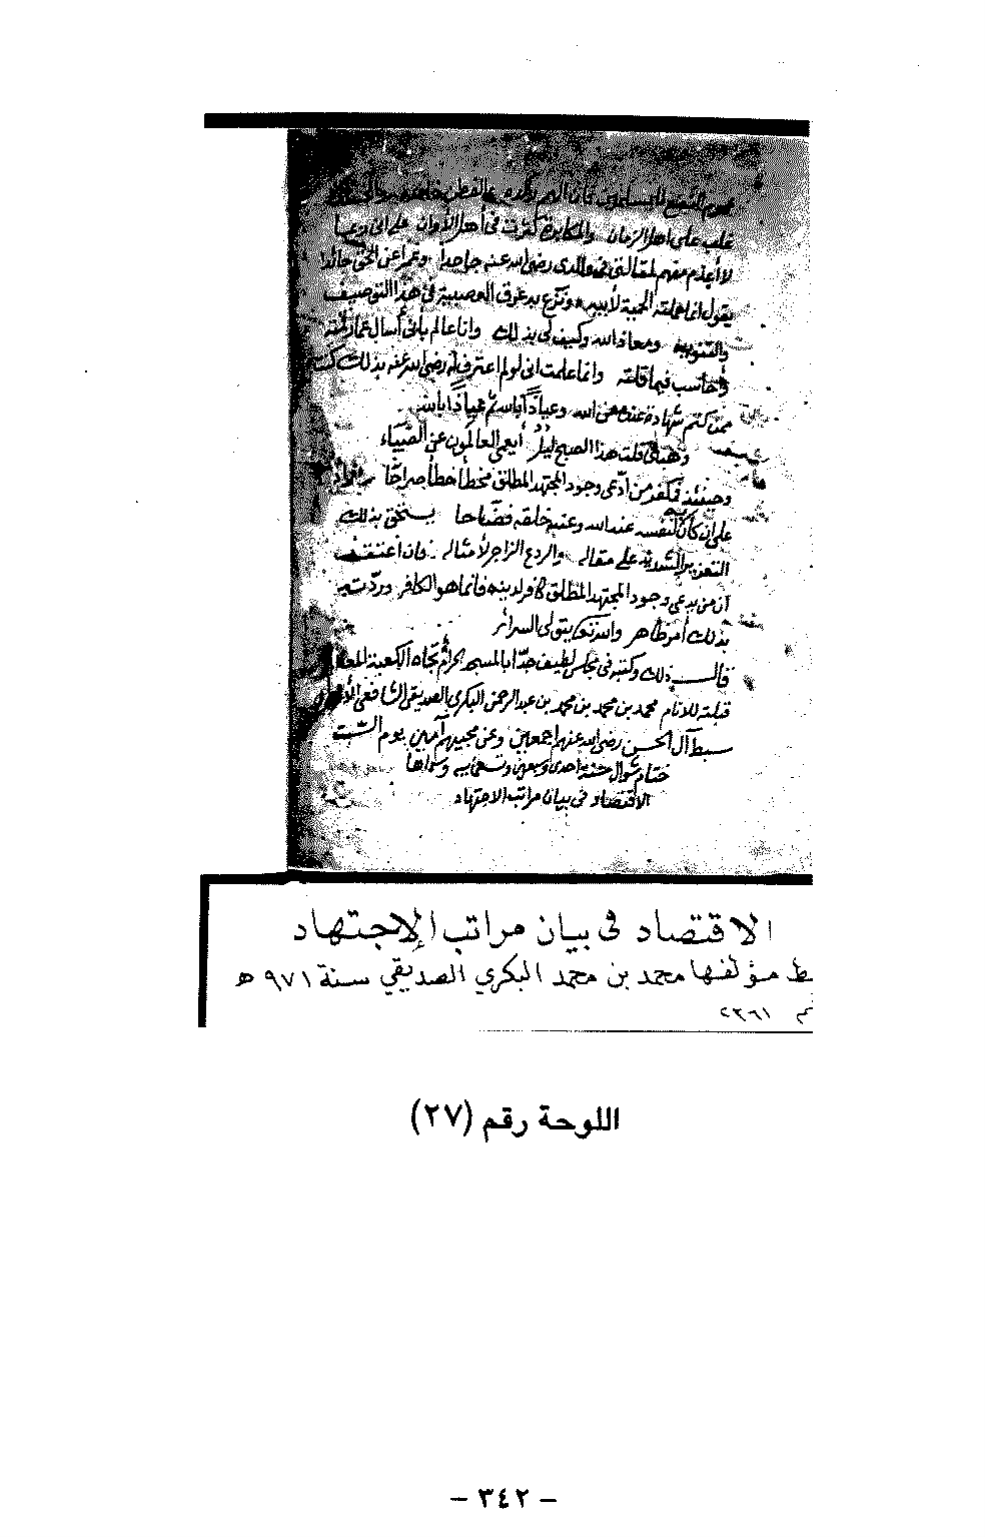 غلب على اهل الزمان والمكابرة كثرت في أهل الأوان على اني
لا أعدم منهم لمقالتي في والدي رضي الله عنه جاحدا وعن الحق حائدا
يقول انما حملته الحمية لأبيه ونزع به عرق العصبية في هذا التوصيف
ومعاذ الله وكيف لي بذلك وانا عالم بأني أسأل عما
وأحاسب فيما قلته وانما علمت اني لو لم اعترف له رضي الله عنه بذلك كنت
ممن كتم شهادة عنده من الله وعياذا بالله ثم عياذا بالله
وهبني قلت هذا الصبح ليل أيعمى العالمون عن الضياء
وحينئذ فمكفر من ادعى وجود المجتهد المطلق مخطأ خطأ صراحا
على ان كان لنفسه عند الله وعند خلقه فضاحا يستحق بذلك
التعزير الشديد على مقاله والردع الزاجر لأمثاله فان اعتقد
أن من يدعي وجود المجتهد المطلق كافر لدينه فانما هو الكافر وردته
بذلك أمر ظاهر والله تعالى يتولى السرائر
قال ذلك وكتبه في مجلس لطيف جدا بالمسجد الحرام تجاه الكعبة
قبلة للانام محمد بن محمد بن محمد بن عبد الرحمن البكري الصديقي الشافعي
سبط آل الحسن رضي الله عنهم اجمعين وعن محبيهم آمين يوم السبت
ختام شوال سنة احدى وسبعين وتسعمايه وسماها
الاقتصاد في بيان مراتب الاجتهاد
الاقتصاد في بيان مراتب الإجتهاد
مؤلفها محمد بن محمد البكري الصديقي سنة ٩٧١ هـ
٢٣٦١
اللوحة رقم (٢٧)
– ٣٤٢ –